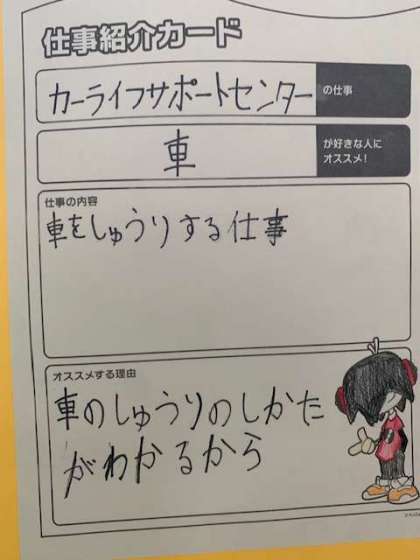 仕事紹介カード
カーライフサポートセンター の仕事
車 が好きな人に
オススメ!
仕事の内容
車をしゅうりする仕事
オススメする理由
車のしゅうりのしかた
がわかるから